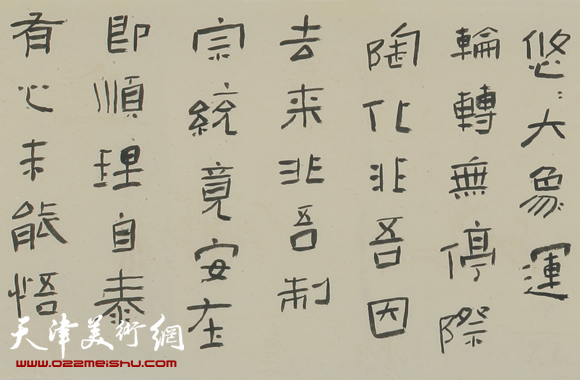 悠〻大象運
輪轉無停際
陶化非吾因
去来非吾制
宗統竟安在
即順理自泰
有心未能悟
天津美術網
www.022meishu.com